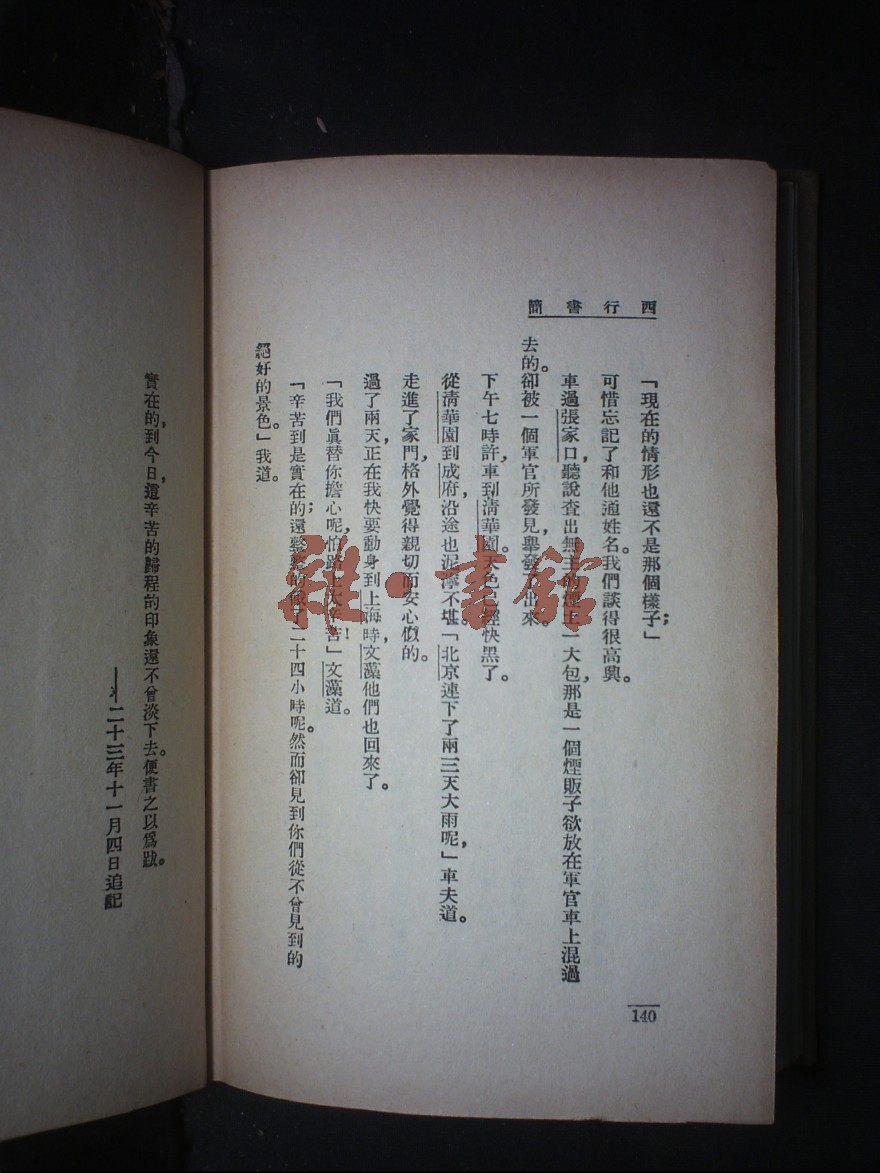 西行書簡
「現在的情形也還不是那個樣子；」
可惜忘記了和他通姓名。我們談得很高興。
車過張家口，聽說查出無主的煙土一大包，那是一個煙販子欲放在軍官車上混過
去的。卻被一個軍官所發見，舉發了出來。
下午七時許，車到清華園。天色已經快黑了。
從清華園到成府，沿途也泥濘不堪。「北京連下了兩三天大雨呢，」車夫道。
走進了家門，格外覺得親切而安心似的。
過了兩天，正在我快要動身到上海時，文藻他們也回來了。
「我們眞替你擔心呢，怕路上太辛苦！」文藻道。
「辛苦到是實在的；還整整的餓了二十四小時呢。然而卻見到你們從不曾見到的
絕好的景色。」我道。
140
實在的，到今日，這辛苦的歸程的印象還不曾淡下去。便書之以爲跋。
二十三年十一月四日追記
雜·書館